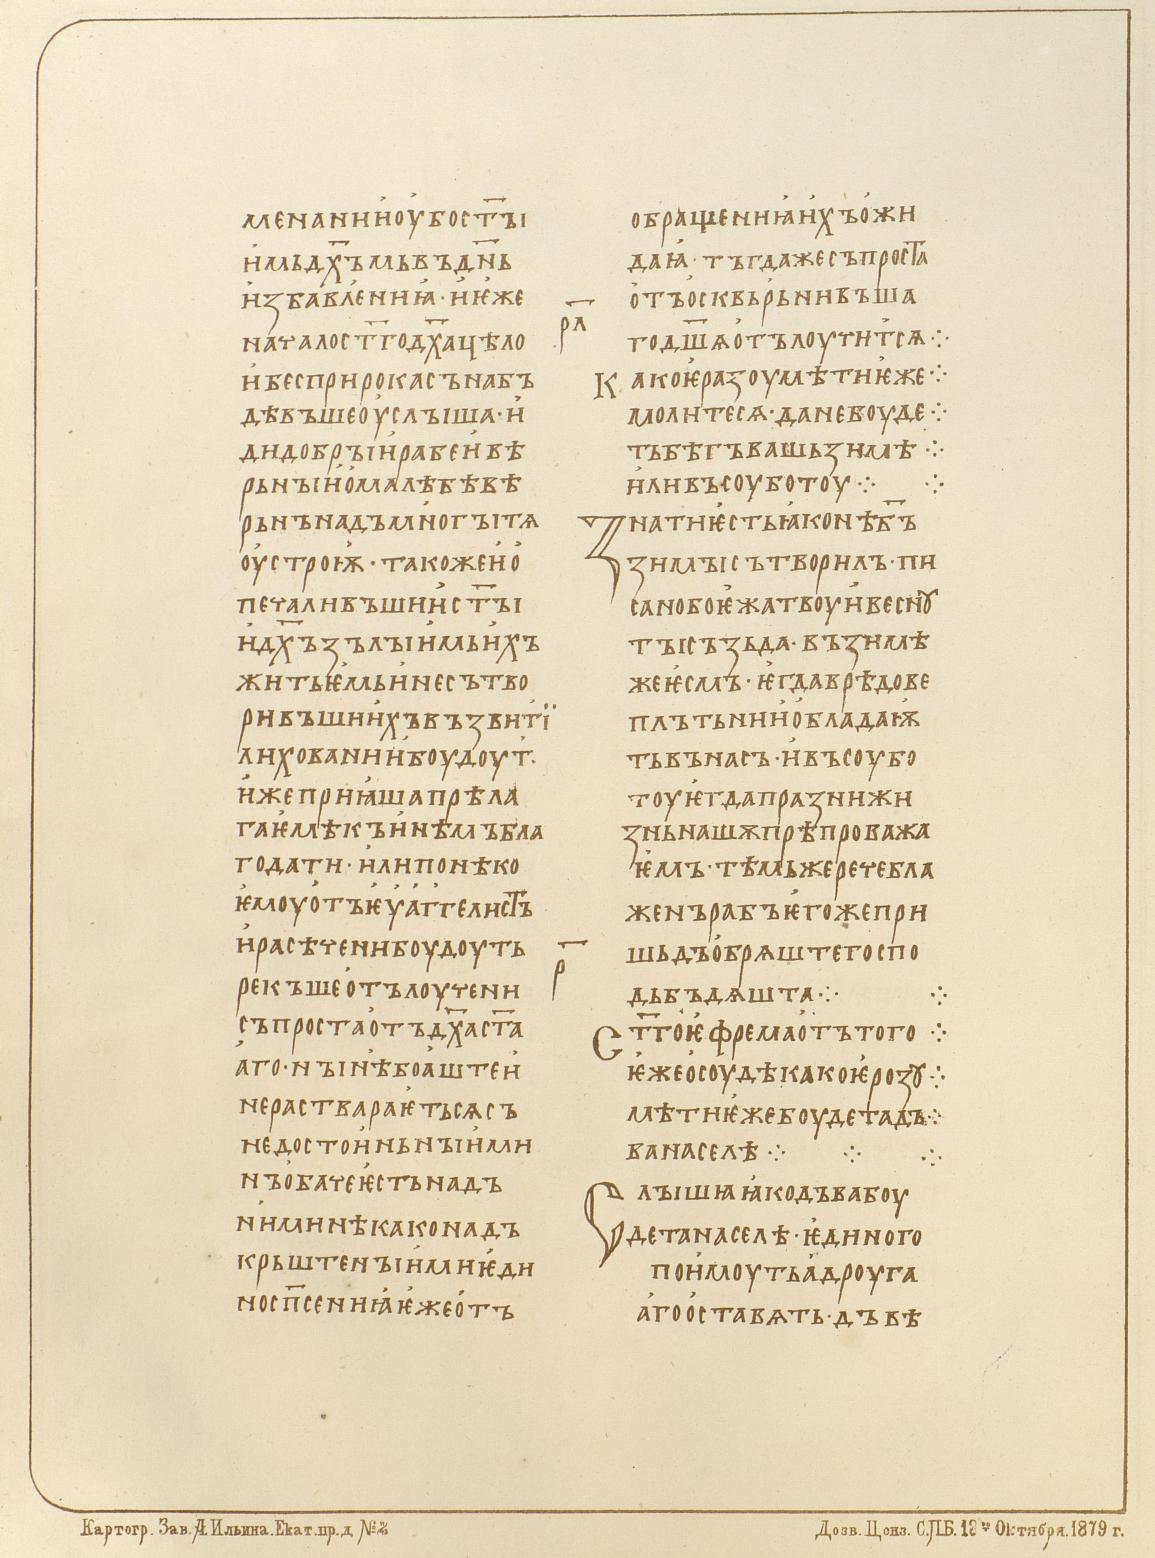 менании оу бост҃ꙑ
имьдх҃ъмьвъдн҃ь
избавлениꙗ·иѥже
началост҃гѡдх҃ацѣло
ибесприрокасънабъ
дѣвъшеоуслꙑша·и
дидобрꙑирабеивѣ
рьнꙑиомалѣбѣвѣ
рьнънадъмногꙑтѧ
оустроѭ·такожеио
печаливъшиист҃ꙑ
идх҃ъзълꙑимьихъ
житьѥмьинесътво
ривъшиихъвъзвитї
лихованиибоудоут·
ижеприꙗшапрѣла
гаѥмѣкъинѣмъбла
годати·илипонѣко
ѥмоуотъѥуаггелист҃ъ
ирасѣченибоудоуть
рекъшеотълоучени
съпростаотъдх҃аст҃а
аго·нꙑнѣбоаштеи
нерастварaѥтьсѧсъ
недостоиньнꙑими
нъобачеѥстьнадъ
ниминѣкаконадъ
крьштенꙑимиѥди
носп҃сениꙗѥжеотъ
обращениꙗихъожи
даꙗ·тъгдажесъпрост҃а
отъосквьрьнивъша
годш҃ѧотълоучитсѧ
р҃л
какоѥразоумѣтиѥже
молитесѧ·данебоуде
тьбѣгъвашьзимѣ
иливъсоуботоу
знатиѥстьꙗконѣб҃ъ
зимꙑсътворилъ·пи
санобоѥжатвоуивеснꙋ
тꙑсъзьда·възимѣ
жеѥсмъ·ѥгдаврѣдове
плътьнииобладаѭ
тьвънасъ·ивъсоубо
тоуѥгдапразнижи
зньнашѫпрѣпроважа
ѥмъ·тѣмьжеречебла
женърабъѥгожепри
шьдъобрѧштегоспо
дьбъдѧшта
р҃
ст҃гоѥфремаотътого
ѥжеосоудѣкакоѥрозꙋ
мѣтиѥжебоудетадъ
ванаселѣ
слꙑшꙗꙗкодъвабоу
детанаселѣ·ѥдиного
поимоутьадроуга
агооставѧть·дъвѣ
Картогр. Зав. А. Ильина. Екат. пр. д. №
Дозв. Ценз. С.П.Б. 18го Октября. 1879 г.